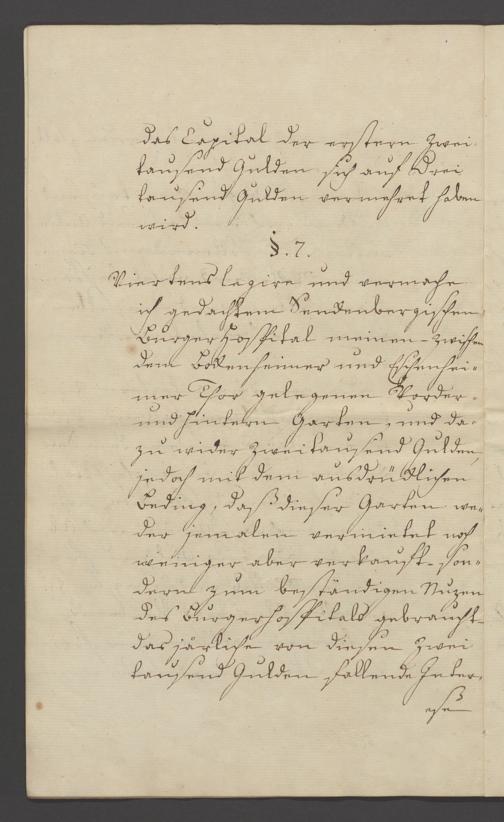 das Capital der erstern Zwei
tausend Gulden sich auf Drei
tausend Gulden vermehret haben
wird.
§. 7.
Viertens legire und vermache
ich gedachtem Senckenbergischen
Burger Hospital meinen zwischen
dem Bockenheimer und Eschenhei-
mer Thor gelegenen Vorder-
und hintern Garten, und da-
zu wider Zweitausend Gulden,
jedoch mit dem ausdrücklichen
Beding, daß dieser Garten we-
der jemalen vermietet noch
weniger aber verkauft - son-
dern zum beständigen Nuzen
des Burgerhospitals gebraucht -
das järliche von diesen Zwei
tausend Gulden fallende Inter-